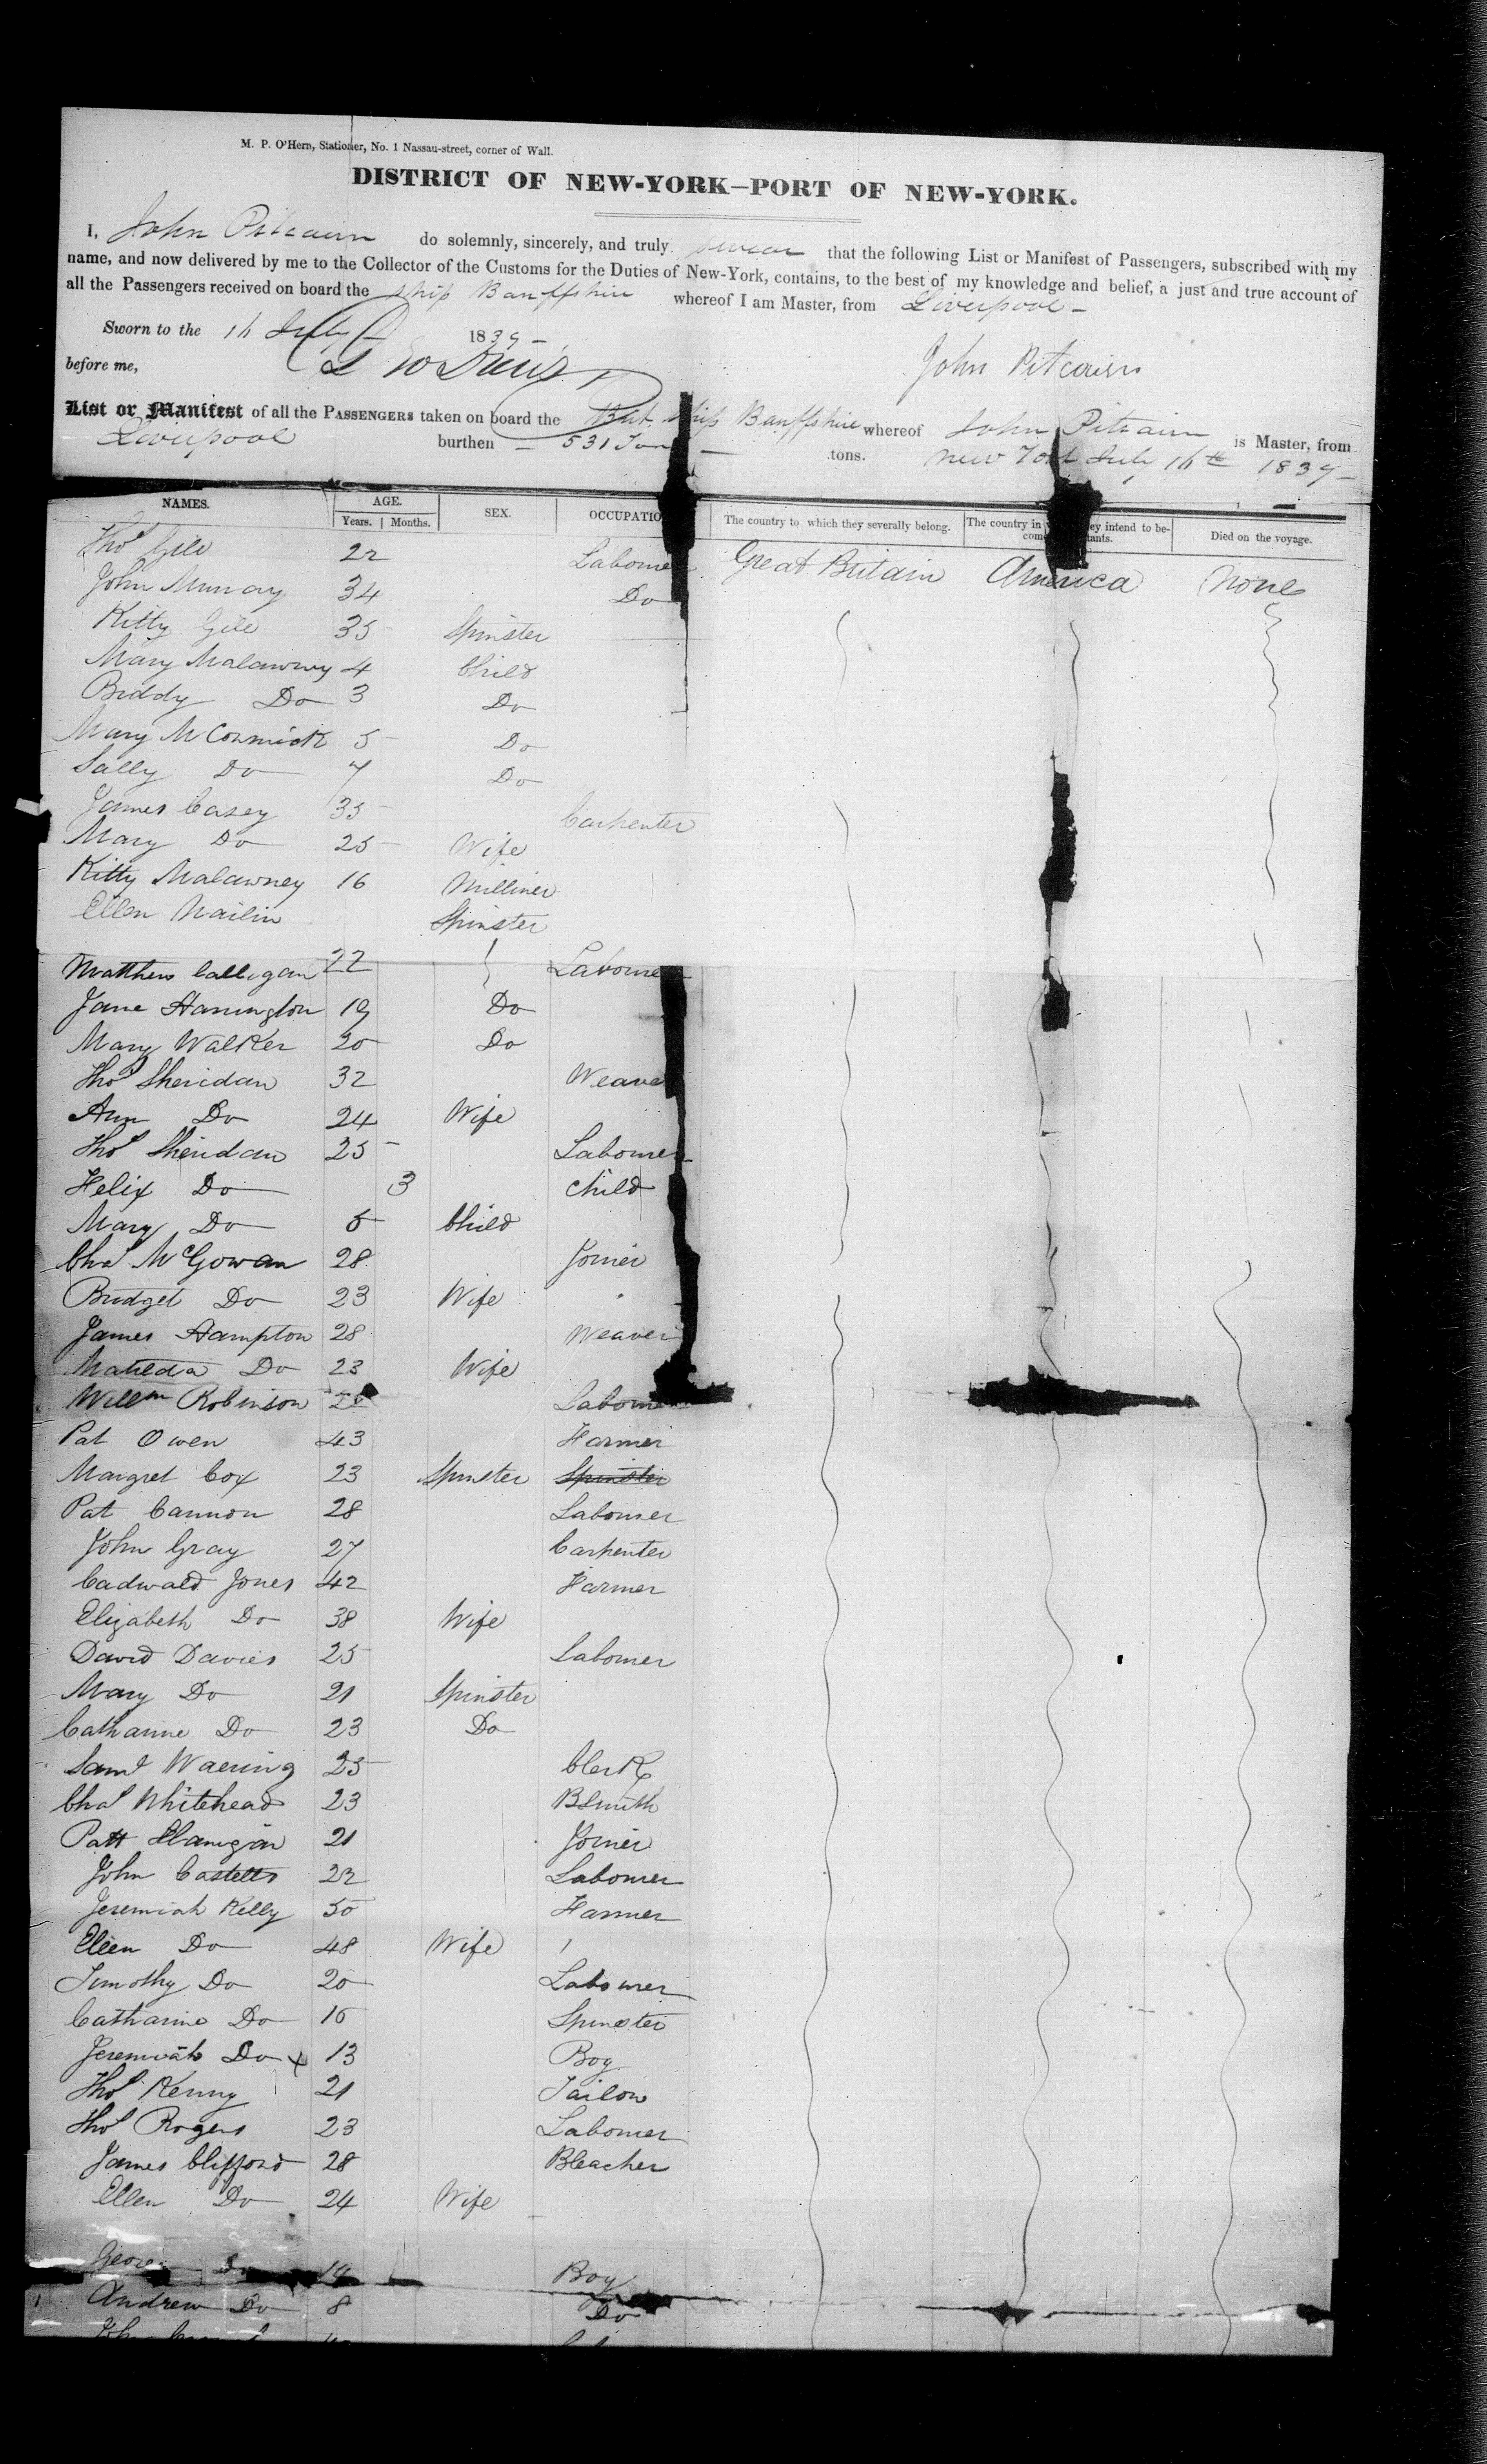 M. P. O'Hern, Stationer, No. 1 Nassau-street, corner of Wall.
DISTRICT OF NEW-YORK—PORT OF NEW-YORK.
I, John Pitcairn do solemnly, sincerely, and truly swear that the following List or Manifest of Passengers, subscribed with my
name, and now delivered by me to the Collector of the Customs for the Duties of New-York, contains, to the best of my knowledge and belief, a just and true account of
all the Passengers received on board the Ship Banffshire whereof I am Master, from Liverpool -
Sworn to the 16 July 1839 -
before me, John Pitcairn
List or Manifest of all the PASSENGERS taken on board the Brit. Ship Banffshire whereof John Pitcairn is Master, from
Liverpool burthen - 531 Tons - tons. New York July 16th 1839 -
NAMES. AGE. SEX. OCCUPATIO The country to which they severally belong. The country in they intend to be- Died on the voyage.
Years. Months. come tants.
Thos Gill 22 Labourer Great Britain America None
John Murray 34 Do
Kitty Gill 35 Spinster
Mary Malawney 4 Child
Biddy Do 3 Do
Mary McCormick 5 Do
Sally Do 7 Do
James Casey 35 Carpenter
Mary Do 25 Wife
Kitty Malawney 16 Milliner
Ellen Nailin Spinster
Matthew Calligan 22 Labourer
Jane Harrington 19 Do
Mary Walker 20 Do
Thos Sheridan 32 Weave
Ann Do 24 Wife
Thos Sheridan 25 Labourer
Felix Do 3 Child
Mary Do 5 Child
Chas McGowan 28 Joiner
Bridget Do 23 Wife
James Hampton 28 Weaver
Matilda Do 23 Wife
Willm Robinson Labour
Pat Owen 43 Farmer
Margret Cox 23 Spinster Spinster
Pat Cannon 28 Labourer
John Gray 27 Carpenter
Cadwald Jones 42 Farmer
Elizabeth Do 38 Wife
David Davies 25 Labourer
Mary Do 21 Spinster
Catharine Do 23 Do
Saml Waering 25 Clerk
Chas Whitehead 23 BSmith
Patt Flanigan 21 Joiner
John Castello 22 Labourer
Jeremiah Kelly 50 Farmer
Ellen Do 48 Wife
Timothy Do 20 Labourer
Catharine Do 16 Spinster
Jeremiah Do x 13 Boy
Thos Kenny 21 Tailor
Thos Rogers 23 Labourer
James Clifford 28 Bleacher
Ellen Do 24 Wife
George Do 14 Boy
Andrew Do 8 Do
John